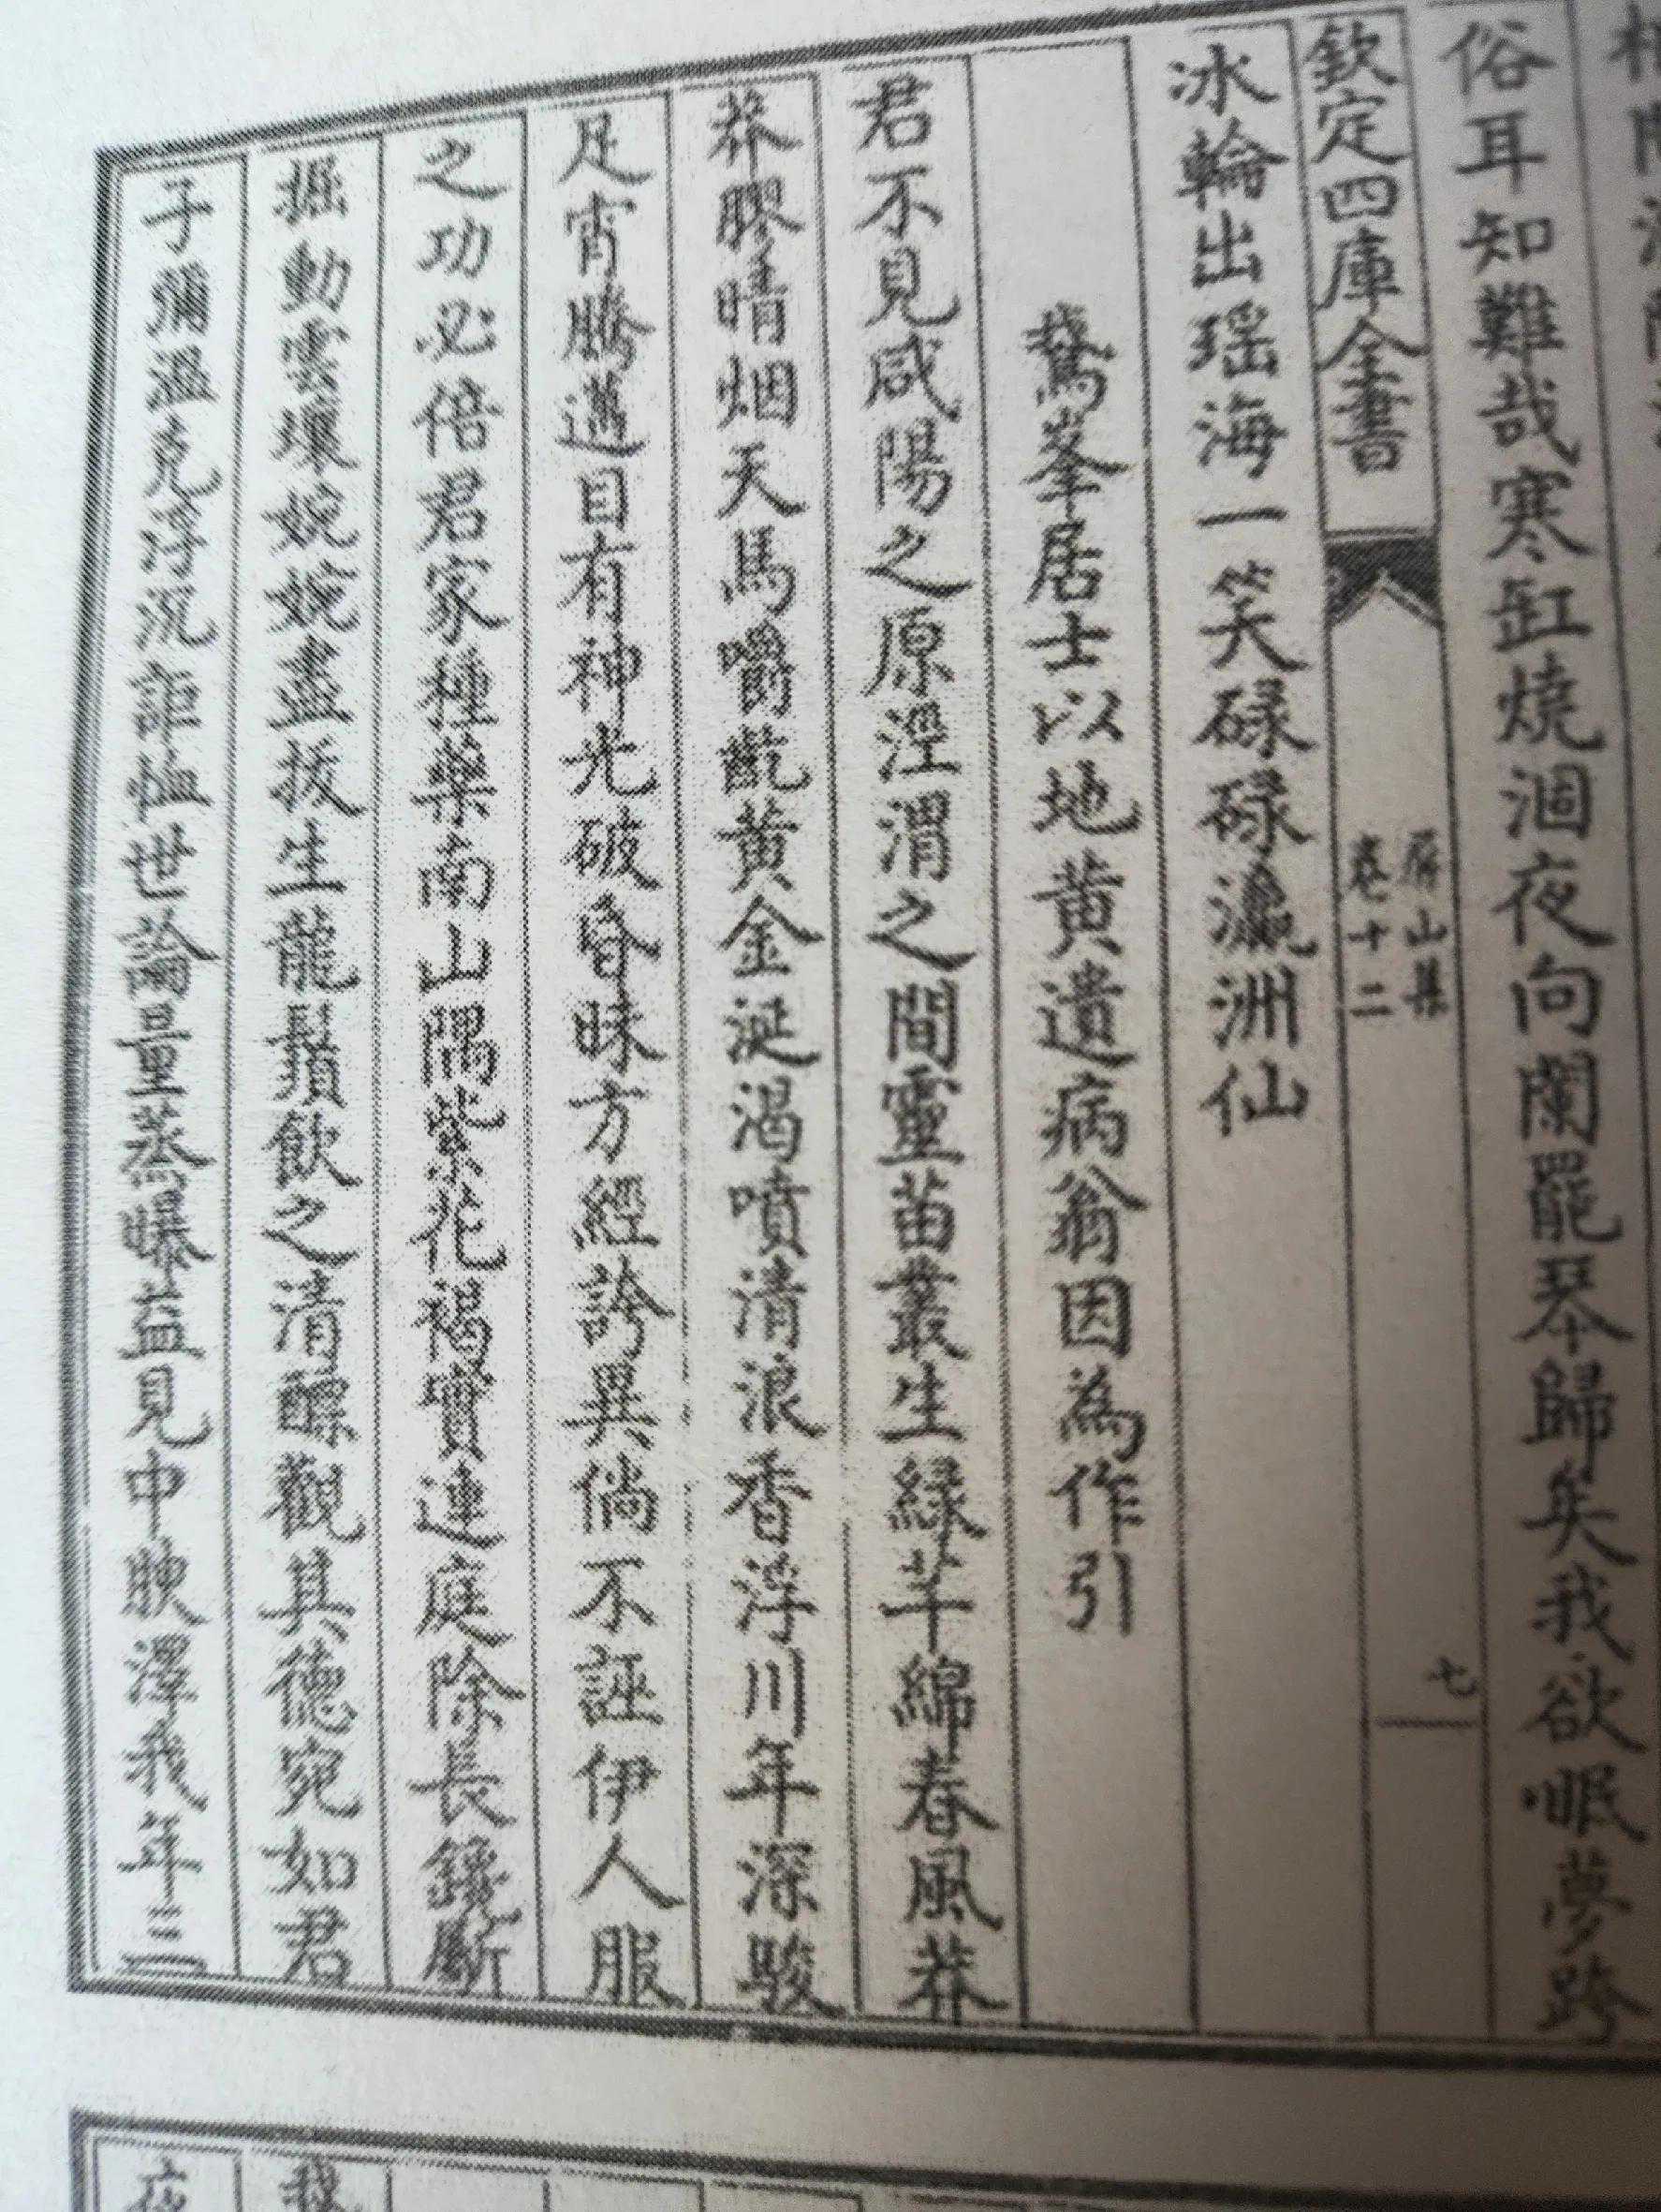 俗耳知難哉寒缸燒涸夜向闌罷琴歸矣我欲眠夢跨
欽定四庫全書
屏山集
卷十二
七
冰輪出瑶海一笑碌碌瀛洲仙
鵞峯居士以地黄遺病翁因為作引
君不見咸陽之原涇渭之間靈苗叢生緑芊綿春風莽
莽膠晴烟天馬嚼齕黄金涎渴噴清浪香浮川年深駿
足宵騰邁目有神光破昏昧方經誇異倘不誣伊人服
之功必倍君家種藥南山隅紫花褐實連庭除長鑱斸
掘動雲壤婉婉盡拔生龍鬚飲之清醥觀其德宛如君
子彌温克浮沉詎恤世論量蒸曝益見中腴澤我年三